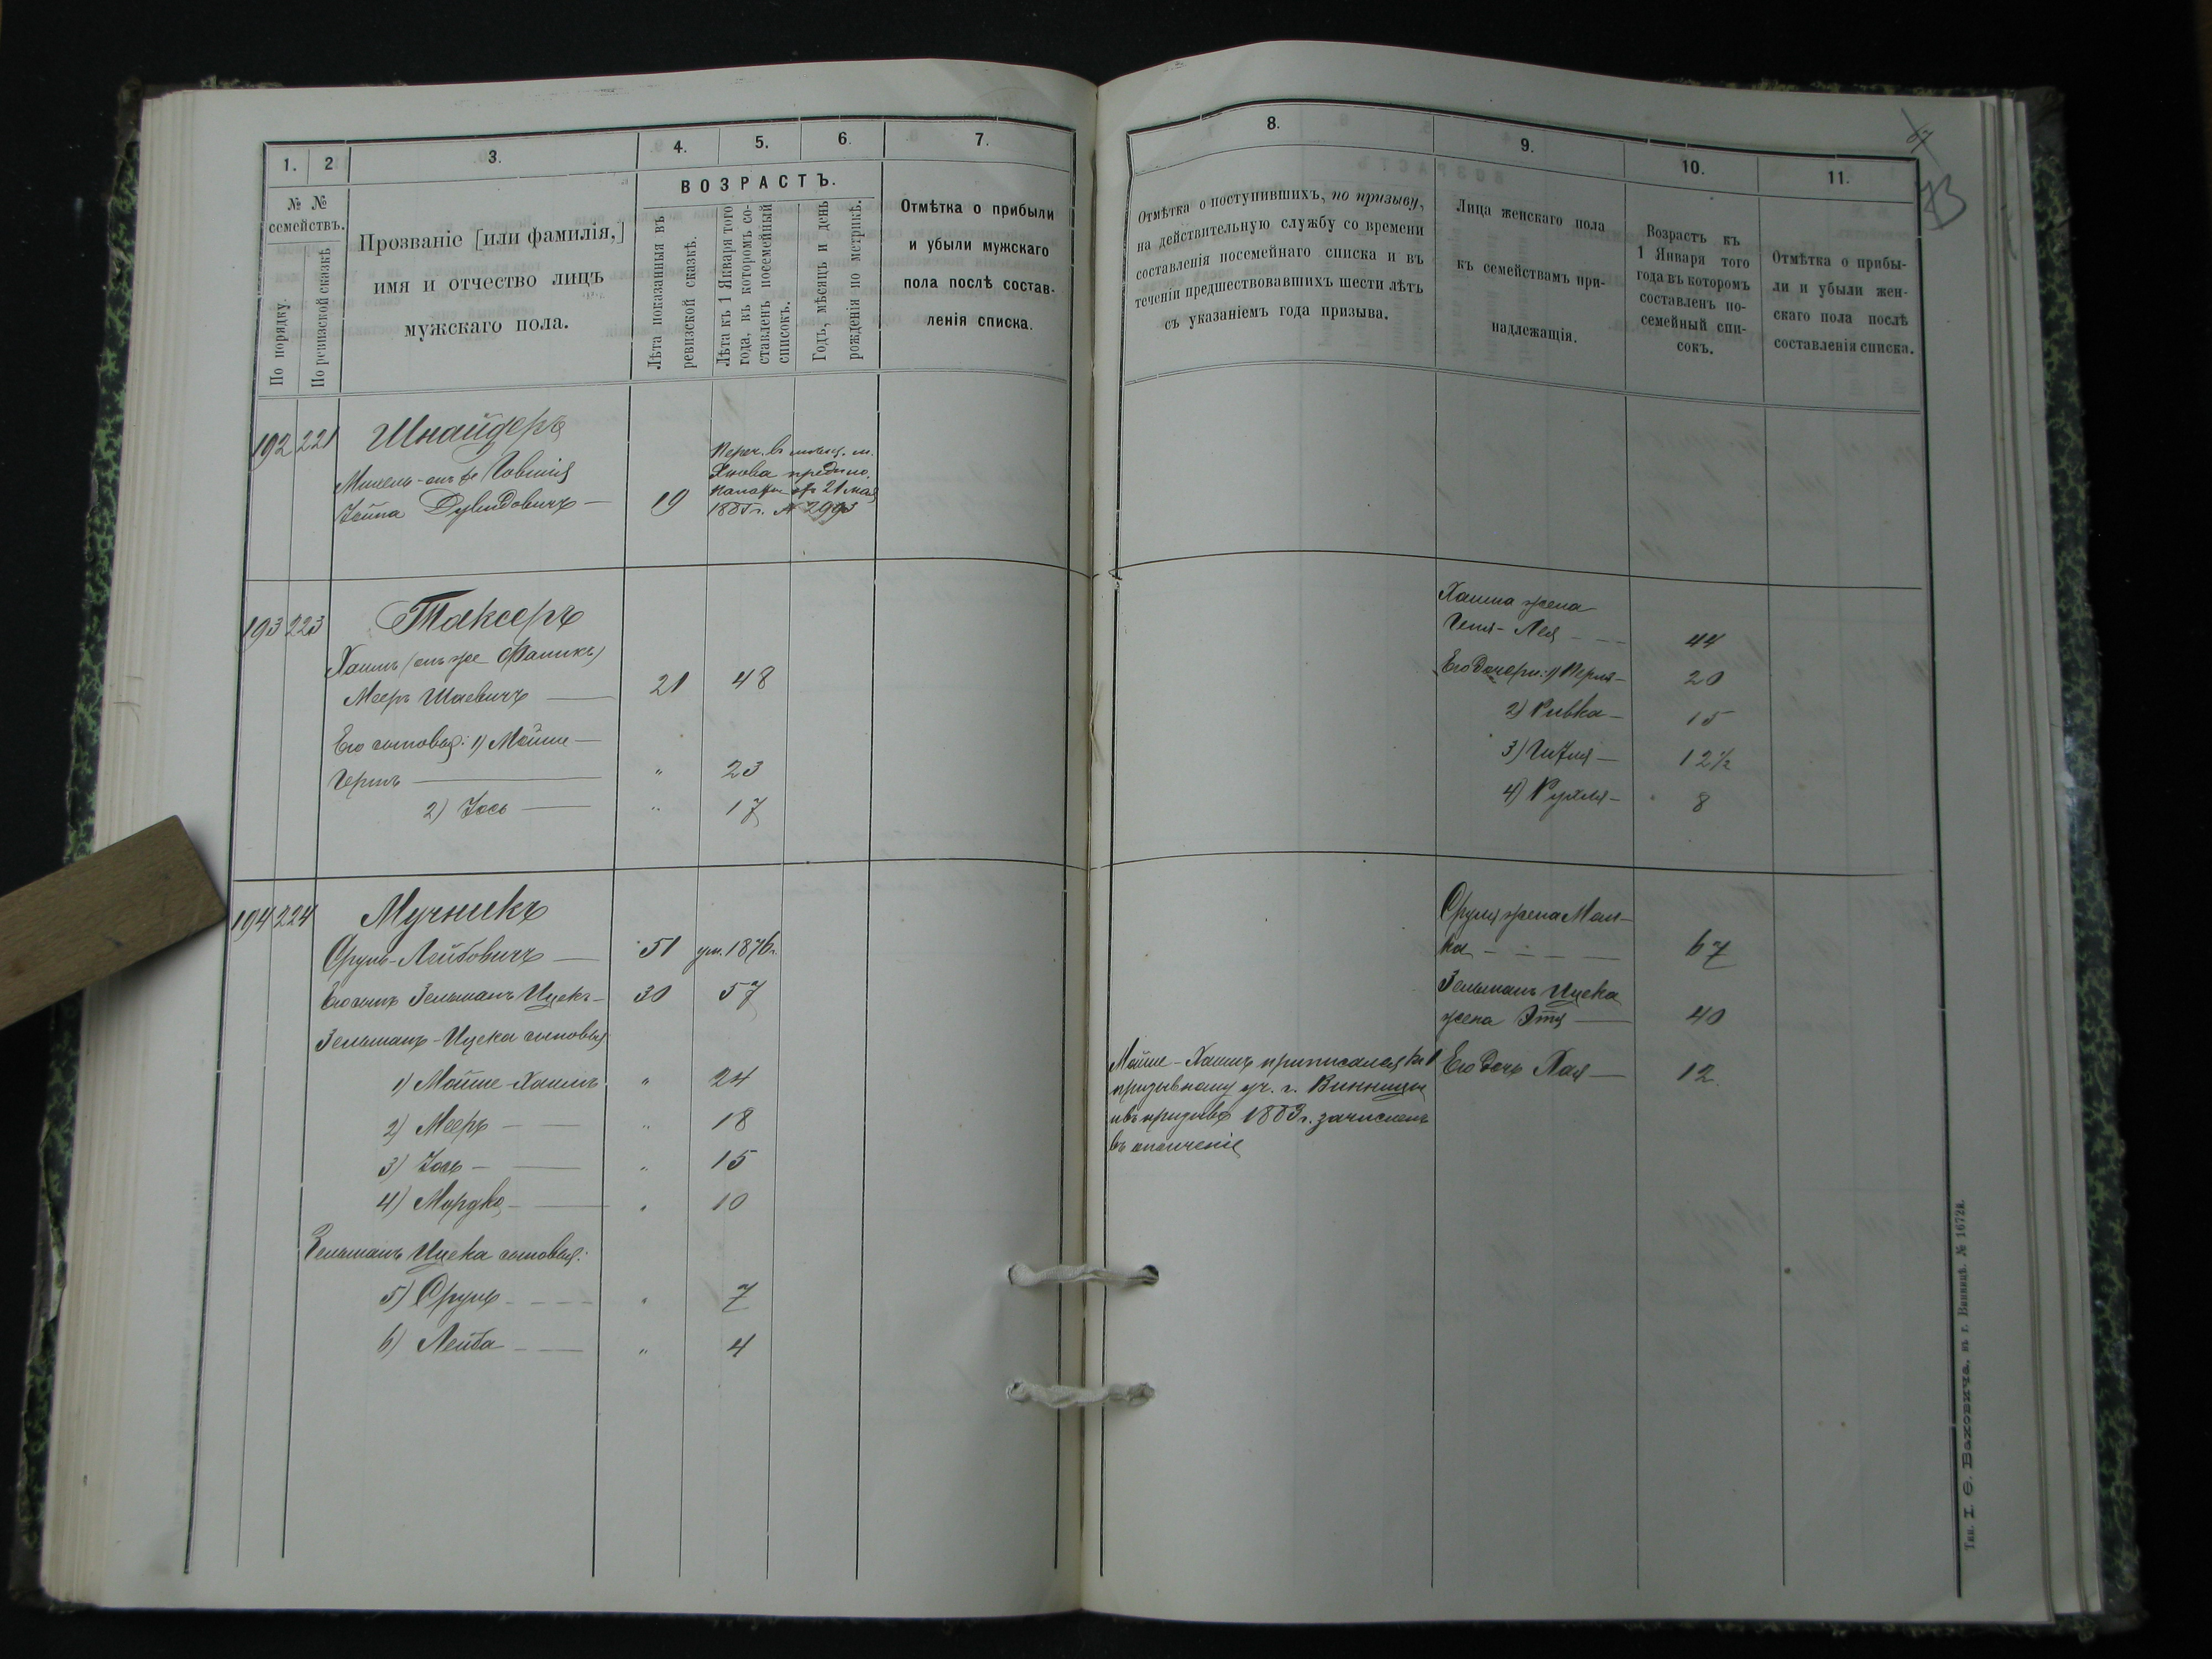 1. 2 3. 4. 5. 6. 7.
№ № семействъ.
По порядку.
По ревизской сказкѣ
Прозваніе [или фамилія,]
имя и отчество лицъ
мужскаго пола.
ВОЗРАСТЪ.
Лѣта показанныя въ
ревизской сказкѣ.
Лѣта къ 1 Января того
года, въ которомъ со-
ставленъ посемейный
списокъ.
Годъ, мѣсяцъ и день
рожденія по метрикѣ.
Отмѣтка о прибыли
и убыли мужскаго
пола послѣ состав-
ленія списка.
192 221 Шнайдеръ
Іойна Дувидовичъ — 19
Переч. въ
предпис.
21 мая
1885 г. № 2993
193 223 Таксеръ
Хаимъ (онъ же Фаликъ)
Мееръ Шаевичъ — 21 48
Его сыновья: 1) Мойше —
Гершъ — " 23
2) Іось — " 17
194 224 Мучникъ
Сруль-Лейбовичъ — 51 ум. 1876 г.
Его сынъ Зельманъ Ицекъ — 30 57
Зельманъ-Ицека сыновья
1) Мойше-Хаимъ " 24
2) Мееръ — " 18
3) Іось — " 15
4) Мордко — " 10
Зельманъ Ицека сыновья:
5) Сруль — " 7
6) Лейба — " 4
8. 9. 10. 11.
73
Отмѣтка о поступившихъ, по призыву,
на дѣйствительную службу со времени
составленія посемейнаго списка и въ
теченіи предшествовавшихъ шести лѣтъ
съ указаніемъ года призыва.
Лица женскаго пола
къ семействамъ при-
надлежащія.
Возрастъ къ
1 Января того
года въ которомъ
составленъ по-
семейный спи-
сокъ.
Отмѣтка о прибы-
ли и убыли жен-
скаго пола послѣ
составленія списка.
Хаима жена
Лея — 44
Его дочери: 1) Перля — 20
2) Ривка — 15
3) Гитля — 12½
4) Рухля — 8
Сруля жена Мал-
ка — 67
Зельманъ Ицека
жена Этя — 40
Его дочь Хая — 12
Мойше-Хаимъ приписался къ 1
призывному уч. г. Винницы
и въ призывъ 1883 г. зачисленъ
въ ополченіе
Тип. І. Ѳ. Баховича, въ г. Винницѣ. № 1672а.